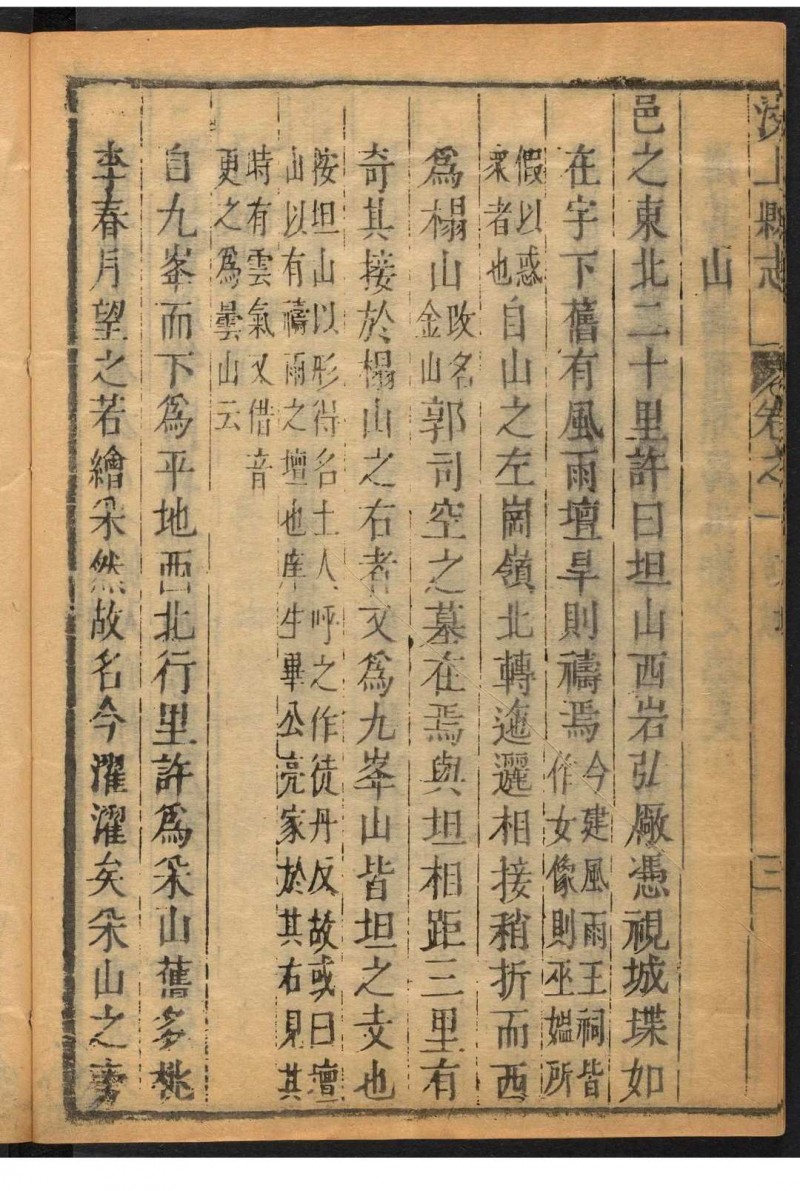 汶上縣志 卷之一 方域 三
山
邑之東北二十里許曰坦山西岩弘厰憑視城堞如
在宇下舊有風雨壇旱則禱焉今建風雨王祠皆作女像則巫媼所
假以惑衆者也自山之左崗嶺北轉迤邐相接稍折而西
爲榻山改名金山郭司空之墓在焉與坦相距三里有
奇其接於榻山之右者又爲九峯山皆坦之支也
按坦山以形得名土人呼之作徒丹反故或曰壇
山以有禱雨之壇也庠生畢公亮家於其右見其
時有雲氣又借音
更之爲曇山云
自九峯而下爲平地西北行里許爲朵山舊多桃
李春月望之若繪朵然故名今濯濯矣朵山之旁